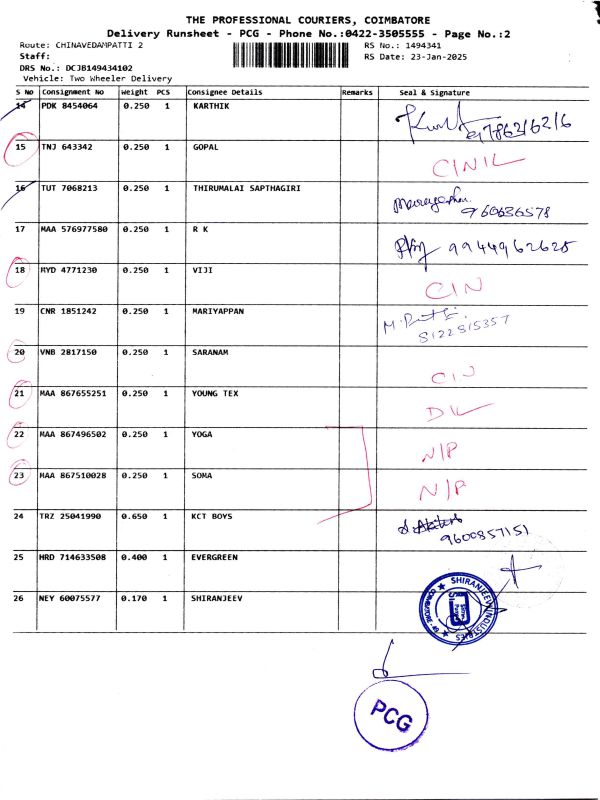 THE PROFESSIONAL COURIERS, COIMBATORE
Delivery Runsheet - PCG - Phone No.:0422-3505555 - Page No.:2
Route: CHINAVEDAMPATTI 2 RS No.: 1494341
Staff: RS Date: 23-Jan-2025
DRS No.: DCJB149434102
Vehicle: Two Wheeler Delivery
S No Consignment No Weight PCS Consignee Details Remarks Seal & Signature
14 PDK 8454064 0.250 1 KARTHIK
15 TNJ 643342 0.250 1 GOPAL CINIL
16 TUT 7068213 0.250 1 THIRUMALAI SAPTHAGIRI
960636578
17 MAA 576977580 0.250 1 R K 9944962625
18 MYD 4771230 0.250 1 VIJI CIN
19 CNR 1851242 0.250 1 MARIYAPPAN
8122515357
20 VNB 2817150 0.250 1 SARANAM CIN
21 MAA 867655251 0.250 1 YOUNG TEX DIL
22 MAA 867496502 0.250 1 YOGA N/P
23 MAA 867510028 0.250 1 SOMA N/P
24 TRZ 25041990 0.650 1 KCT BOYS
9600857151
25 HRD 714633508 0.400 1 EVERGREEN
26 NEY 60075577 0.170 1 SHIRANJEEV
SHIRANJEEV INDUSTRIES
PCG